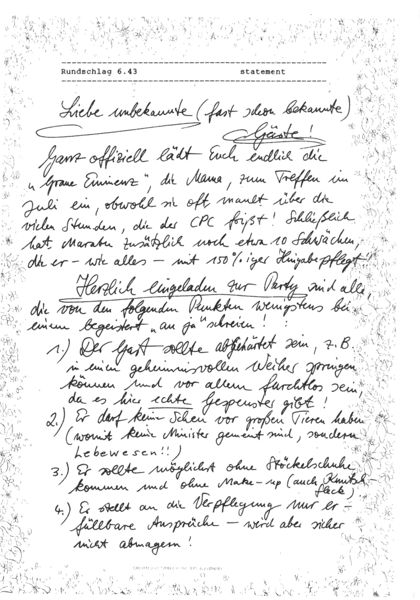 Rundschlag 6.43 statement
Liebe unbekannte (fast schon bekannte)
Gäste!
Ganz offiziell lädt Euch endlich die
„Graue Eminenz", die Mama, zum Treffen im
Juli ein, obwohl sie oft mault über die
vielen Stunden, die der CPC frißt! Schließlich
hat Marabu zusätzlich noch etwa 10 Schwächen,
die er - wie alles - mit 150%iger Hingabe pflegt!
Herzlich eingeladen zur Party sind alle,
die von den folgenden Punkten wenigstens bei
einem begeistert „au ja" schreien!
1.) Der Gast sollte abgehärtet sein, z.B.
in einen geheimnisvollen Weiher springen
können und vor allem furchtlos sein,
da es hier echte Gespenster gibt!
2.) Er darf keine Scheu vor großen Tieren haben
(womit keine Minister gemeint sind, sondern
Lebewesen!!)
3.) Er sollte möglichst ohne Stöckelschuhe
kommen und ohne Make-up (auch
4.) Er stellt an die Verpflegung nur er-
füllbare Ansprüche - wird aber sicher
nicht abmagern!